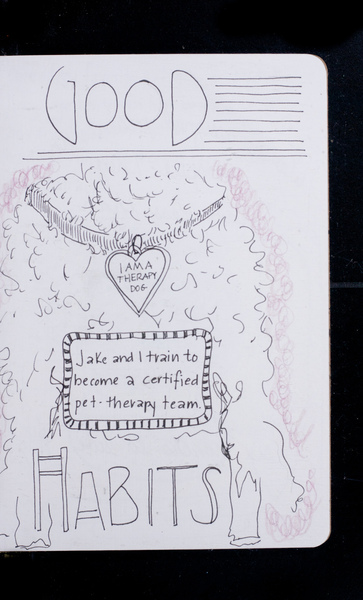 GOOD
I AM A
THERAPY
DOG
Jake and I train to
become a certified
pet-therapy team.
HABITS